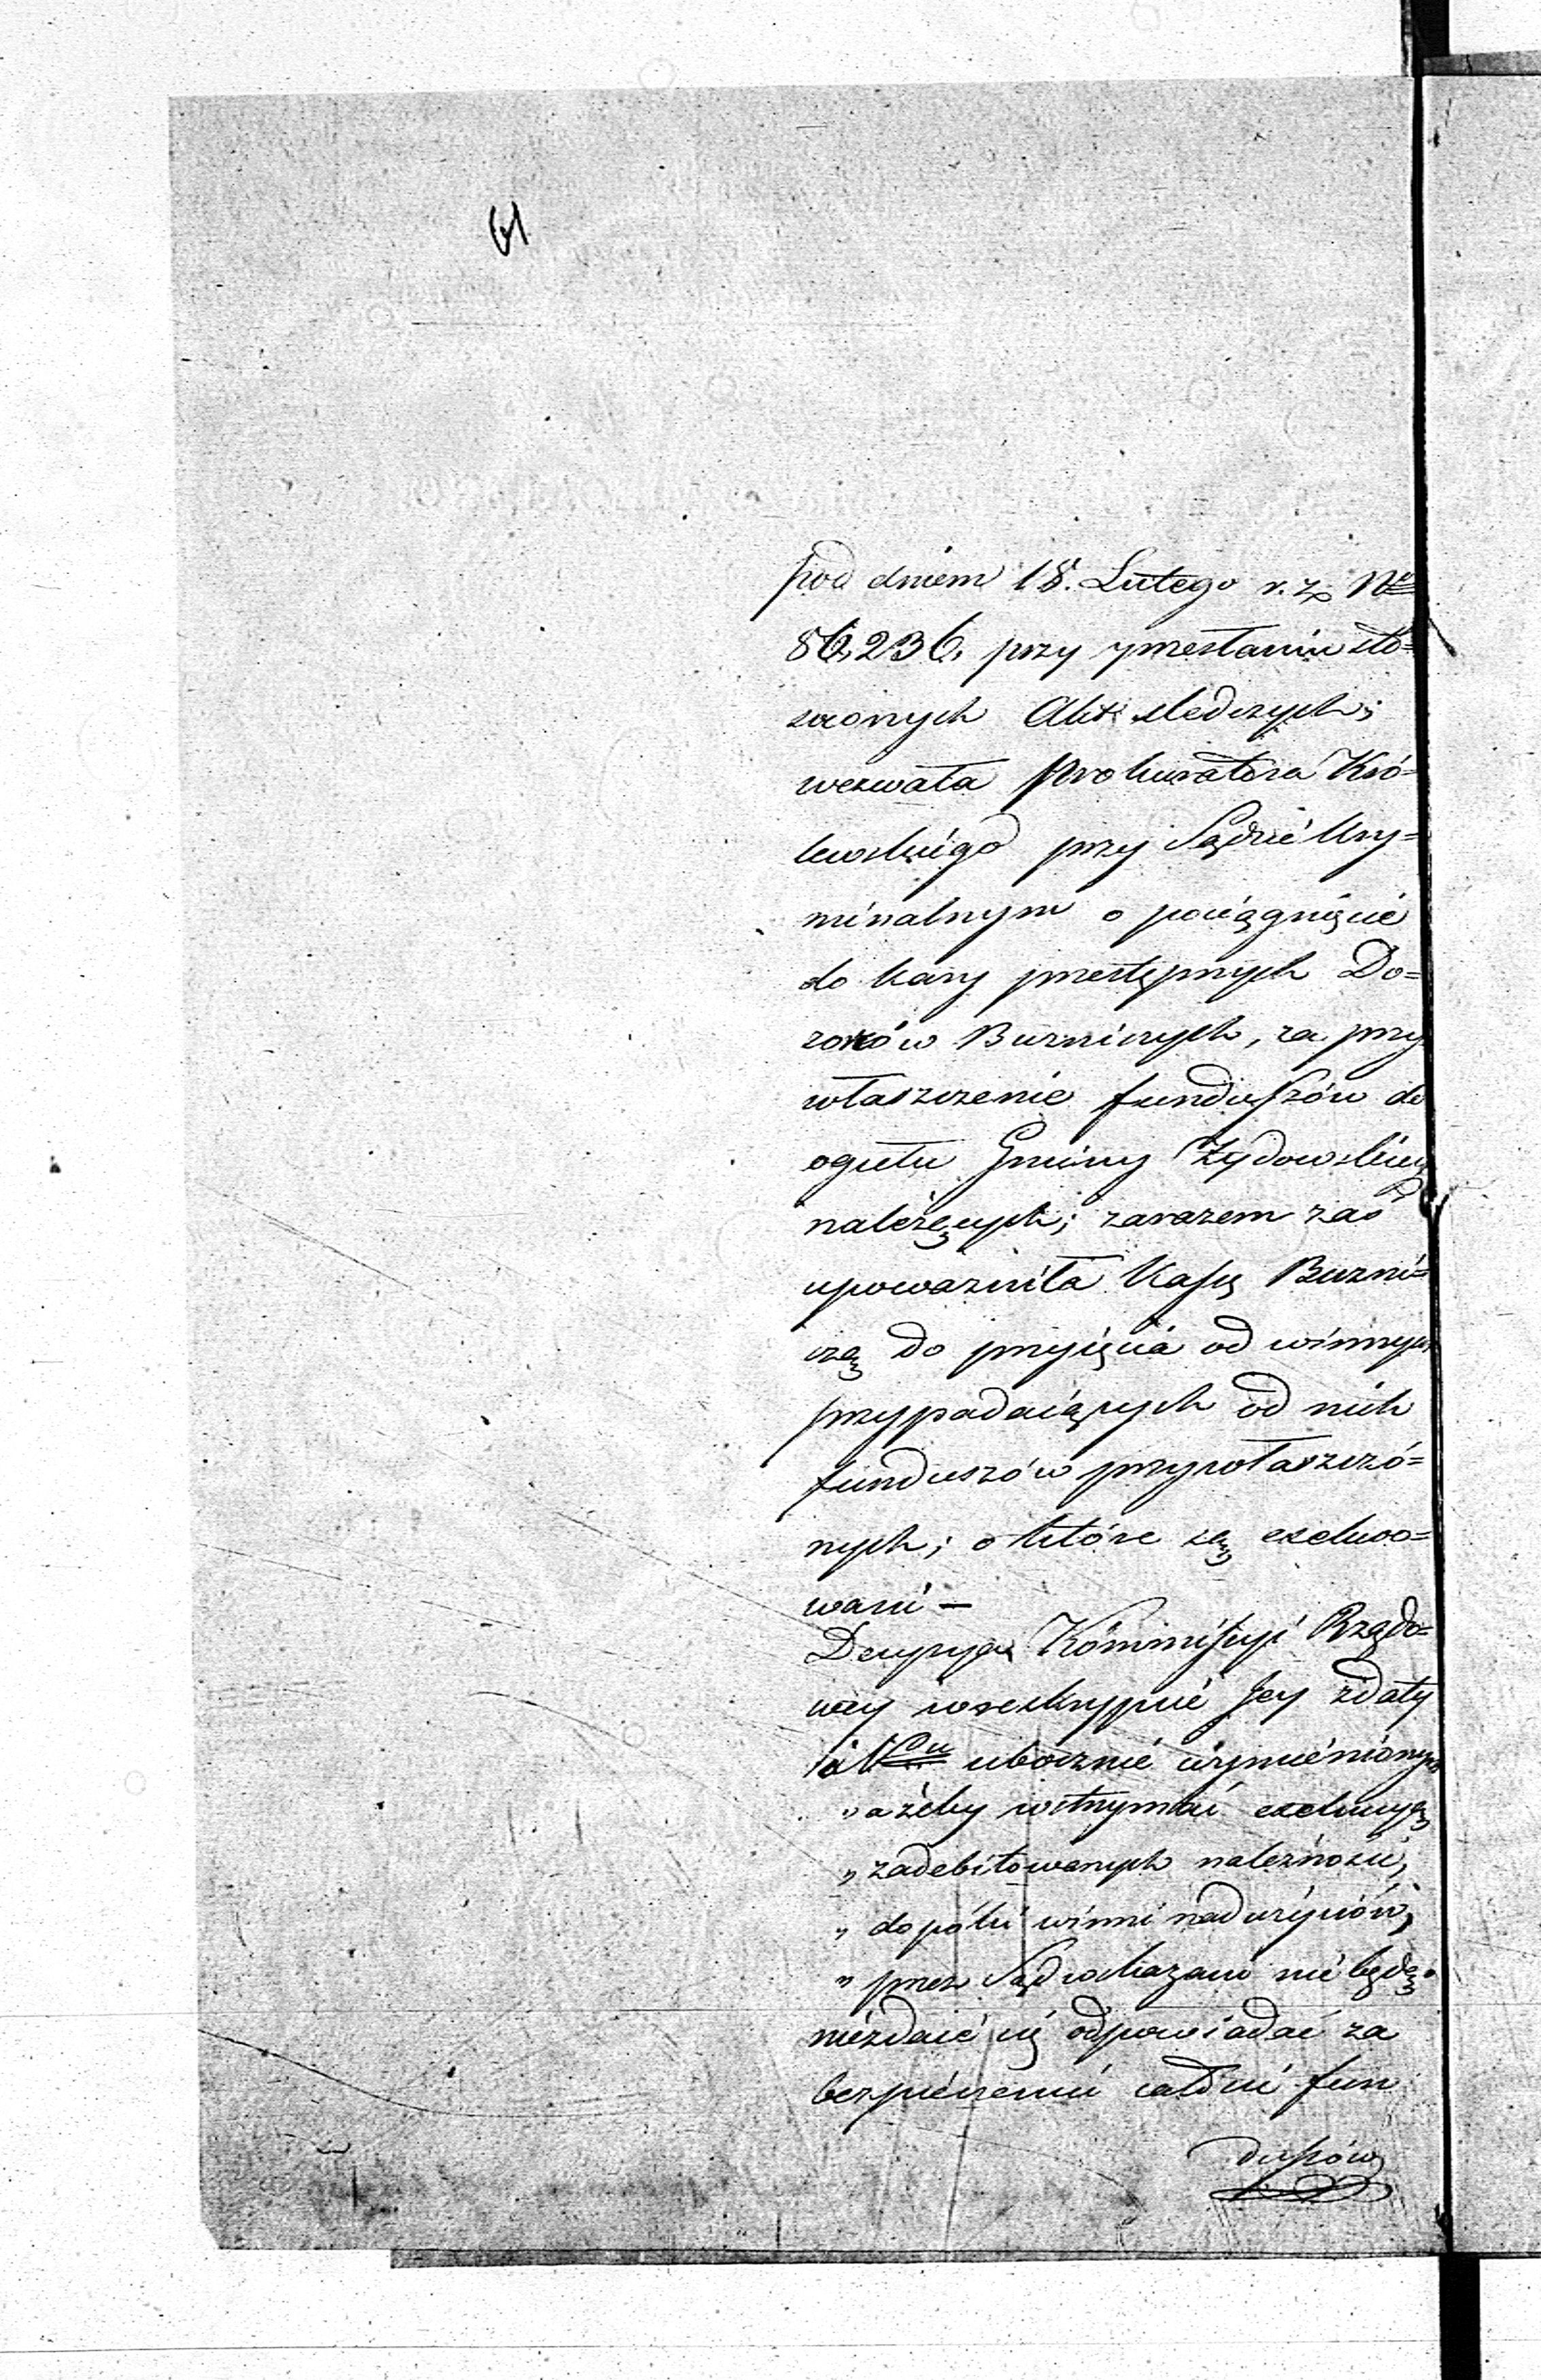 61
pod dniem 18. Lutego r. z. No
86,236, przy przesłaniu sto=
sownych Akt śledczych;
wezwała Prokuratora Kró=
lewskiego przy Sądzie Kry=
minalnym o pociągnięcie
do kary przestępnych Do=
zorów Bużniczych, za przy
właszczenie funduszów do
ogułu Gminy Żydowskiey
należących; zarazem zaś
upoważniła Kassę Bużni=
czą do przyięcia od winnych
przypadaiących od nich
funduszów przywłaszczo=
nych; o które są exekwo=
wani —
Decyzya Kommissyi Rządo=
wey w reskrypcie Jey z daty
i Nru ubocznie wymienionych
„ ażeby wstrzymać exekucyą
„ zadebitowanych należności,
„ dopóki winni nadużyciów,
„ przez Sąd wskazani nie będą.
niezdaie się odpowiadać za
bezpieczeniu całości fun
duszów